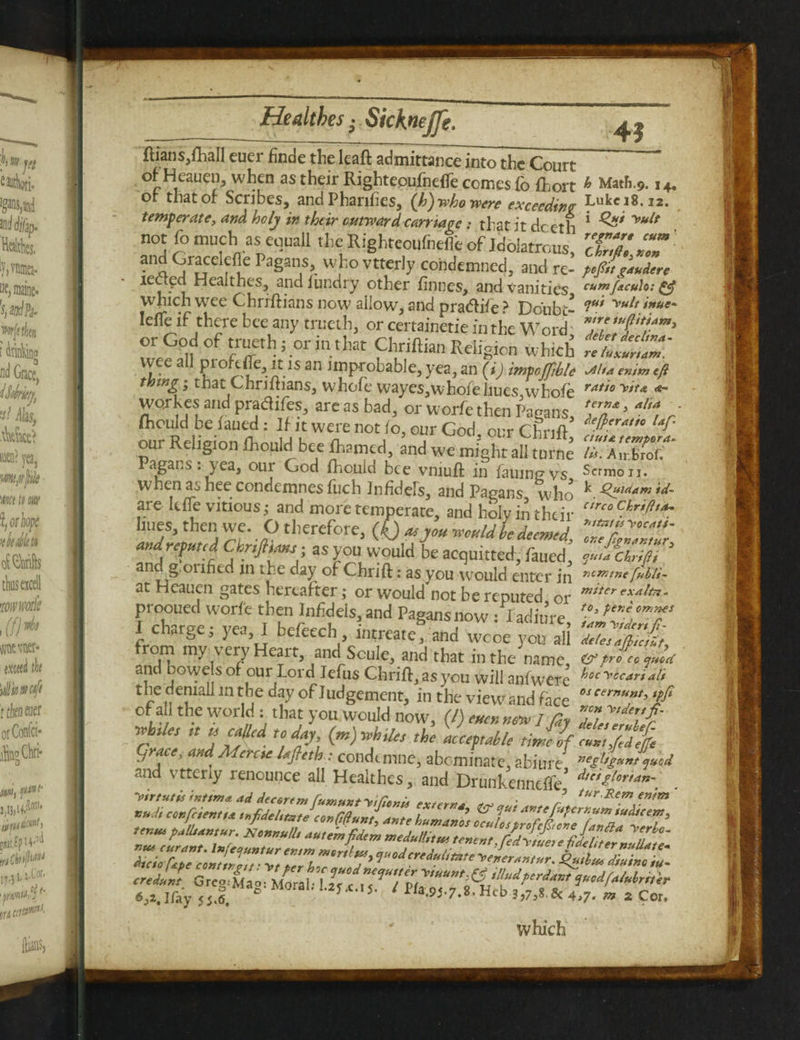 Healthes; Sicknesse.
43
ſtians,ſhall euer finde the leaſt admittance into the Court
of Heauen, when as their Righteouſneſſe comes ſo ſhort
of that of Scribes, and Phariſies, (h) who were exceeding
temperate, and holy in their outward carriage: that it doeth
not ſo much as equall the Righteouſneſſe of Idolatrous,
and Graceleſſe Pagans, who vtterly condemned, and re-
iected Healthes, and ſundry other ſinnes, and vanities,
which wee Chriſtians now allow, and practiſe? Doubt-
leſſe if there bee any trueth, or certainetie in the Word;
or God of trueth; or in that Chriſtian Religion which
wee all profeſſe, it is an improbable, yea, an (i) impoſſible
thing; that Chriſtians, whoſe wayes,whoſe liues,whoſe
workes and practiſes, are as bad, or worſe then Pagans,
ſhould be ſaued: If it were not ſo, our God, our Chriſt,
our Religion ſhould bee ſhamed, and we might all turne
Pagans: yea, our God ſhould bee vniuſt in ſauing vs,
when as hee condemnes ſuch Infidels, and Pagans, who
are leſſe vitious; and more temperate, and holy in their
liues, then we. O therefore, (k) as you would be deemed,
and reputed Chriſtians; as you would be acquitted, ſaued,
and glorified in the day of Chriſt: as you would enter in
at Heauen gates hereafter; or would not be reputed, or
prooued worſe then Infidels, and Pagans now: I adiure,
I charge; yea, I beſeech, intreate, and wooe you all
from my very Heart, and Soule, and that in the name,
and bowels of our Lord Ieſus Chriſt,as you will anſwere
the deniall in the day of Iudgement, in the view and face
of all the world: that you would now, (l) euen now I ſay
whiles it is called to day, (m) whiles the acceptable time of
Grace, and Mercie laſteth: condemne, abominate, abiure,
and vtterly renounce all Healthes, and Drunkenneſſe,
h Math.9. 14.
Luke 18. 12.
i Qui vult
regnare cum
Chriſto, non
poſſit gaudere
cum ſaculo: &
qui vult inue-
nire iuſtitiam,
debet declina-
re luxuriam.
Alia enim eſt
ratio vitæ æ-
ternæ, alia
deſperatio laſ-
ciuiæ tempora-
lis. Ambroſ.
Sermo 11.
k Quidam id-
circo Chriſtia-
nitatis vocati-
one ſignantur,
quia Chriſti
nomine ſubli-
miter exalta-
to, pene omnes
iam videri fi-
deles aſpiciũt,
& pro eo quod
hoc vocari ali
os cernunt, ipſi
non videri fi-
deles erubeſ-
cunt,ſed eſſe
negligunt quod
dici glorian-
tur.Rem enim
virtutis intimæ ad decorem ſumunt viſionis externæ, & qui ante ſupernum iudicem,
nudi conſcientia infidelitate conſiſtunt, ante humanos oculos profeſsione ſancta verbo-
tenus palliantur. Nonnulli autem fidem medullitus tenent,ſed viuere fideliter nullate-
nus curant. Inſequuntur enim moribus, quod credulitate venerantur. Quibus diuino iu-
dicio ſæpe contingit: vt per hoc quod nequiter viuunt,& illud perdant quod ſalubriter
credunt. Greg:Mag: Moral: l.25.c.15. l Pſa.95.7.8. Heb 3,7,8. & 4,7. m 2 Cor.
6,2, Iſay 55.6.
which